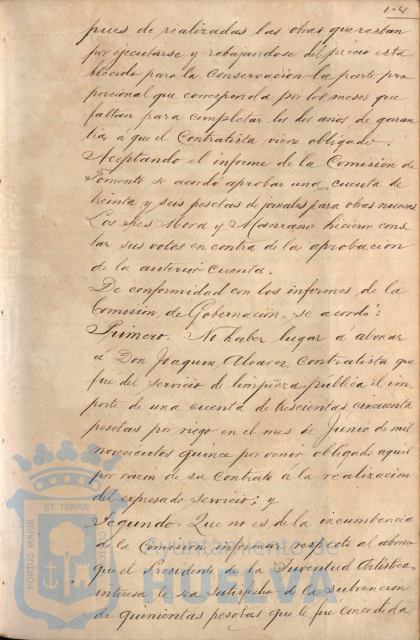 pues de realizadas las obras que restan
por ejecutarse y rebajandose del precio esta
blecido para la Conservación la parte pro
porcional que corresponda por los meses que
faltan para completar los dos años de garan
tia, a que el Contratista viene obligado.
Aceptando el informe de la Comision de
Fomento se acordó aprobar una cuenta de
treinta y seis pesetas de jornales para obras nuevas
Los Sres Mora y Manzano hicieron cons
tar sus votos en contra de la aprobacion
de la anterior cuenta.
De conformidad con los informes de la
Comisión de Gobernacion, se acordó:
Primero. No haber lugar á abonar
á Don Joaquin Alvarez, Contratista que
fué del servicio de limpieza publica el im
porte de una cuenta de trescientas cincuenta
pesetas por riego en el mes de Junio de mil
novecientos quince por venir obligado aquel
por razon de su Contrato á la realizacion
del expresado servicio; y
Segundo. Que no es de la incumbencia
de la Comision informar respecto al abono
que el Presidente de la Juventud Artística
interesa le sea satisfecho de la subvencion
de quinientas pesetas que le fue concedida
PORTUS MARIS ET TERRÆ
Ayuntamiento de
HUELVA